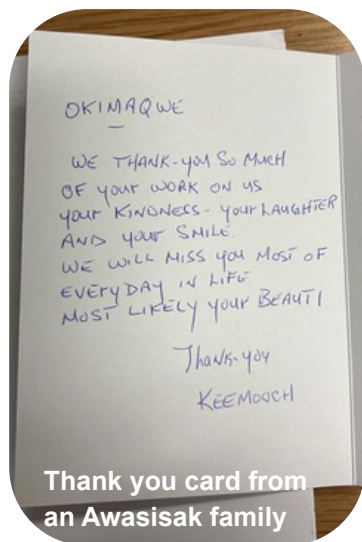 OKIMAQWE
WE THANK-you So Much
OF your WORK ON us
your KINDNESS - your LAUGHTER
AND your SMILE.
WE WILL MISS you MOST OF
EVERYDAY IN LIFE
MOST LIKELY your BEAUTI
Thank-you
KEEMOOCH
Thank you card from
an Awasisak family